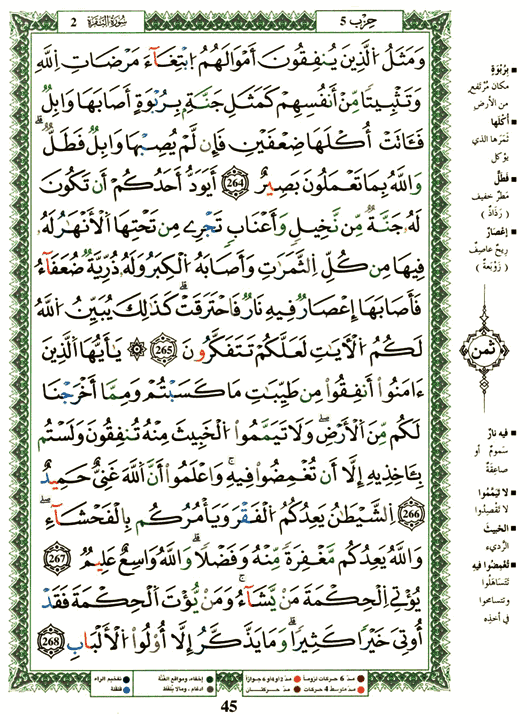 سُورَةُ البَقَرَة 2
حِزب 5
وَمَثَلُ الَّذِينَ يُنفِقُونَ أَمْوَالَهُمُ ابْتِغَآءَ مَرْضَاتِ اِللَّهِ
وَتَثْبِيتًا مِّنْ أَنفُسِهِمْ كَمَثَلِ جَنَّةِۭ بِرُبْوَةٍ أَصَابَهَا وَابِلٌ
فَـَٔاتَتْ أُكْلَهَا ضِعْفَيْنِ فَإِن لَّمْ يُصِبْهَا وَابِلٌ فَطَلٌّۗ
وَاللَّهُ بِمَا تَعْمَلُونَ بَصِيرٌ (264) أَيَوَدُّ أَحَدُكُمْ أَن تَكُونَ
لَهُۥ جَنَّةٌ مِّن نَّخِيلٍ وَأَعْنَابٍ تَجْرِے مِن تَحْتِهَا الْأَنْهَٰرُ لَهُۥ
فِيهَا مِن كُلِّ الثَّمَرَٰتِ وَأَصَابَهُ الْكِبَرُ وَلَهُۥ ذُرِّيَّةٌ ضُعَفَآءُ
فَأَصَابَهَا إِعْصَارٌ فِيهِ نَارٌ فَاحْتَرَقَتْۗ كَذَٰلِكَ يُبَيِّنُ اللَّهُ
لَكُمُ الْآيَٰتِ لَعَلَّكُمْ تَتَفَكَّرُونَ (265) ۞ يَٰٓأَيُّهَا الَّذِينَ
ءَامَنُوٓا أَنفِقُوا مِن طَيِّبَٰتِ مَا كَسَبْتُمْ وَمِمَّآ أَخْرَجْنَا
لَكُم مِّنَ الْأَرْضِۖ وَلَا تَيَمَّمُوا الْخَبِيثَ مِنْهُ تُنفِقُونَ وَلَسْتُم
بِـَٔاخِذِيهِ إِلَّآ أَن تُغْمِضُوا فِيهِۚ وَاعْلَمُوٓا أَنَّ اللَّهَ غَنِيٌّ حَمِيدٌ
(266) اِلشَّيْطَٰنُ يَعِدُكُمُ الْفَقْرَ وَيَأْمُرُكُم بِالْفَحْشَآءِۖ
وَاللَّهُ يَعِدُكُم مَّغْفِرَةً مِّنْهُ وَفَضْلًاۗ وَاللَّهُ وَٰسِعٌ عَلِيمٌ (267)
يُؤْتِے الْحِكْمَةَ مَنْ يَّشَآءُۚ وَمَنْ يُّؤْتَ الْحِكْمَةَ فَقَدْ
أُوتِيَ خَيْرًا كَثِيرًاۗ وَمَا يَذَّكَّرُ إِلَّآ أُوْلُوا الْأَلْبَٰبِ (268)
بِرُبْوَةٍ
مكان مُرتفع
من الأرض
أكْلَها
ثمَرَها الذي
يؤكل
فَطَلٌّ
مَطر خفيف
(رَذاذٌ)
إعْصَارٌ
ريحٌ عاصِفٌ
(زَوْبَعَةٌ)
ثمن
فيه نارٌ
سَمومٌ أو
صاعِقةٌ
لا تيَمَّمُوا
لا تقصِدُوا
الخبيثَ
الرَّديءَ
تُغمِضُوا فيه
تتَساهَلُوا
وتتسامحوا
في أخذِه
مدّ 6 حركات لزوماً
مدّ 2 أو 4 أو 6 جوازاً
إخفاء، ومواقع الغُنَّة
تفخيم الراء
مدّ متوسط 4 حركات
مدّ حركتان
إدغام، وما لا يُلفظ
قلقلة
45